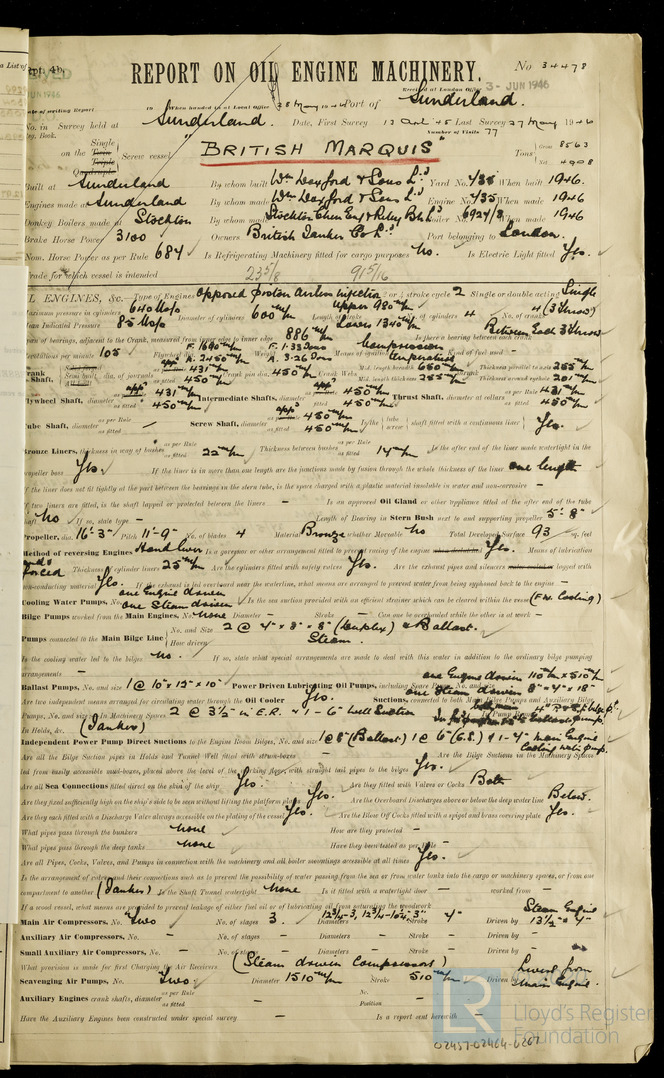 Rpt. 4b.
REPORT ON OIL ENGINE MACHINERY.
No 34478
Received at London Office 3 - JUN 1946
Date of writing Report 19 When handed in at Local Office 28 May 1946 Port of Sunderland.
No. in Survey held at Sunderland. Date, First Survey Last Survey 27 May 1946
Reg. Book. Number of Visits 77
Single
on the Twin Screw vessel "BRITISH MARQUIS" Tons Gross 8563
Triple
Quadruple Net 4908
Built at Sunderland By whom built Wm Doxford & Sons Ld Yard No. 735 When built 1946.
Engines made at Sunderland By whom made Wm Doxford & Sons Ld Engine No. 735 When made 1946
Donkey Boilers made at Stockton By whom made Stockton Chem Eng & Riley Blrs Ld Boiler No. 6924/8 When made 1946
Brake Horse Power 3100 Owners British Tanker Co Ld Port belonging to London.
Nom. Horse Power as per Rule 684 Is Refrigerating Machinery fitted for cargo purposes No. Is Electric Light fitted Yes.
Trade for which vessel is intended 23 5/8 91 5/16
OIL ENGINES, &c. Type of Engines Opposed Piston Airless Injection 2 or 4 stroke cycle 2 Single or double acting Single
Maximum pressure in cylinders 640 lbs/" Diameter of cylinders 600 m/m Length of stroke Upper 980 m/m Lower 1340 m/m No. of cylinders 4 No. of cranks 4 (3 Throws)
Mean Indicated Pressure 85 lbs/"
Span of bearings, adjacent to the Crank, measured from inner edge to inner edge 886 m/m Is there a bearing between each crank Between Each 3 Throws
Revolutions per minute 105 Flywheel dia. Weight Means of ignition Compression Temperature Kind of fuel used -
Crank Shaft, dia. of journals as per Rule app 431 m/m as fitted 450 m/m Crank pin dia. 450 m/m Crank Webs Mid. length breadth 650 m/m Thickness parallel to axis 255 m/m
Mid. length thickness 255 m/m Thickness around eyehole 201 m/m
Flywheel Shaft, diameter as per Rule app 431 m/m as fitted 450 m/m Intermediate Shafts, diameter app 450 m/m as fitted 450 m/m Thrust Shaft, diameter at collars as per Rule 431 m/m as fitted 450 m/m
Tube Shaft, diameter as per Rule as fitted - Screw Shaft, diameter as per Rule app 450 m/m as fitted 450 m/m Is the tube screw shaft fitted with a continuous liner Yes.
Bronze Liners, thickness in way of bushes as per Rule as fitted 22 m/m Thickness between bushes as per Rule as fitted 14 m/m Is the after end of the liner made watertight in the
propeller boss Yes. If the liner is in more than one length are the junctions made by fusion through the whole thickness of the liner One length
If the liner does not fit tightly at the part between the bearings in the stern tube, is the space charged with a plastic material insoluble in water and non-corrosive -
If two liners are fitted, is the shaft lapped or protected between the liners - Is an approved Oil Gland or other appliance fitted at the after end of the tube
shaft No If so, state type - Length of Bearing in Stern Bush next to and supporting propeller 5'-8"
Propeller, dia. 16'-3" Pitch 11'-9" No. of blades 4 Material Bronze whether Moveable No Total Developed Surface 93 sq. feet
Method of reversing Engines Hand lever Is a governor or other arrangement fitted to prevent racing of the engine Yes. Means of lubrication
forced Thickness of cylinder liners 25 m/m Are the cylinders fitted with safety valves Yes. Are the exhaust pipes and silencers lagged with
non-conducting material Yes. If the exhaust is led overboard near the waterline, what means are arranged to prevent water from being syphoned back to the engine -
Cooling Water Pumps, No. one Engine driven one Steam driven Is the sea suction provided with an efficient strainer which can be cleared within the vessel (F.W. Cooling)
Bilge Pumps worked from the Main Engines, No. None Diameter - Stroke - Can one be overhauled while the other is at work -
Pumps connected to the Main Bilge Line No. and Size 2 @ 4" x 8" x 8" (Duplex) & Ballast.
How driven Steam.
Is the cooling water led to the bilges No. If so, state what special arrangements are made to deal with this water in addition to the ordinary bilge pumping
arrangements -
Ballast Pumps, No. and size 1 @ 10" x 12" x 10" Power Driven Lubricating Oil Pumps, including Spare one Engine driven 110 m/m x 510 m/m one Steam driven 8" x 4" x 18"
Are two independent means arranged for circulating water through the Oil Cooler Yes. Suctions, connected to both Main Bilge Pumps and Auxiliary Bilge
Pumps, No. and size: In Machinery Spaces 2 @ 3 1/2" in E.R. & 1-6" Well Suction
In Holds, &c. (Tanker)
Independent Power Pump Direct Suctions to the Engine Room Bilges, No. and size 1 @ 8" (Ballast) 1 @ 6" (G.S.) & 1-4" Main Engine Cooling water Pump.
Are all the Bilge Suction pipes in Holds and Tunnel Well fitted with strum-boxes - Are the Bilge Suctions in the Machinery Spaces
led from easily accessible mud-boxes, placed above the level of the working floor, with straight tail pipes to the bilges Yes.
Are all Sea Connections fitted direct on the skin of the ship Yes. Are they fitted with Valves or Cocks Both
Are they fixed sufficiently high on the ship's side to be seen without lifting the platform plates Yes. Are the Overboard Discharges above or below the deep water line Below.
Are they each fitted with a Discharge Valve always accessible on the plating of the vessel Yes. Are the Blow Off Cocks fitted with a spigot and brass covering plate Yes.
What pipes pass through the bunkers None How are they protected -
What pipes pass through the deep tanks None Have they been tested as per Rule -
Are all Pipes, Cocks, Valves, and Pumps in connection with the machinery and all boiler mountings accessible at all times Yes.
Is the arrangement of valves and their connections such as to prevent the possibility of water passing from the sea or from water tanks into the cargo or machinery spaces, or from one
compartment to another (Tanker) Is the Shaft Tunnel watertight None Is it fitted with a watertight door - worked from -
If a wood vessel, what means are provided to prevent leakage of either fuel oil or of lubricating oil from saturating the woodwork
Main Air Compressors, No. Two No. of stages 3. Diameters 12 3/4 - 3, 12 3/4 - 10 1/4 - 3" Stroke 4" Driven by Steam Engine 13 1/2" x 4"
Auxiliary Air Compressors, No. - No. of stages - Diameters - Stroke - Driven by -
Small Auxiliary Air Compressors, No. - No. of stages - Diameters - Stroke - Driven by -
What provision is made for first Charging the Air Receivers (Steam driven Compressors)
Scavenging Air Pumps, No. Two Diameter 1510 m/m Stroke 510 m/m Driven by Levers from Main Engine.
Auxiliary Engines crank shafts, diameter as per Rule as fitted No. Position -
Have the Auxiliary Engines been constructed under special survey - Is a report sent herewith -
LR Lloyd's Register Foundation
02457-02464-0267